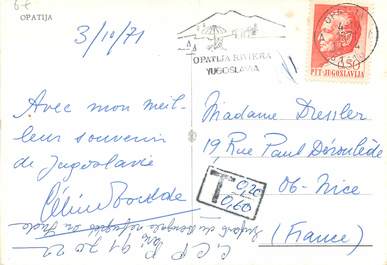 OPATIJA
3/10/71
OPATIJA RIVIERA
YUGOSLAVIA
PTT-JUGOSLAVIJA
Avec mon meil-
leur souvenir
de Jugoslavie
Madame Dressler
19, Rue Paul Déroulède
06-Nice
(France)
T 0,20
0,60
C.C.P. Paris 91 70 22